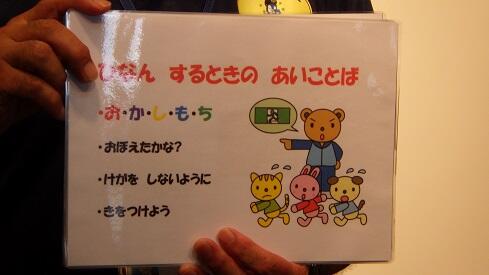 ひなん するときの あいことば
・お・か・し・も・ち
・おぼえたかな?
・けがを しないように
・きをつけよう